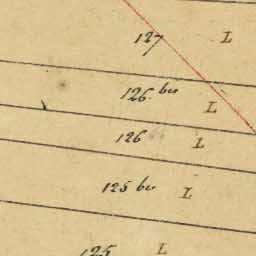 127 L
126. bis L
126 L
125 bis L
125 L